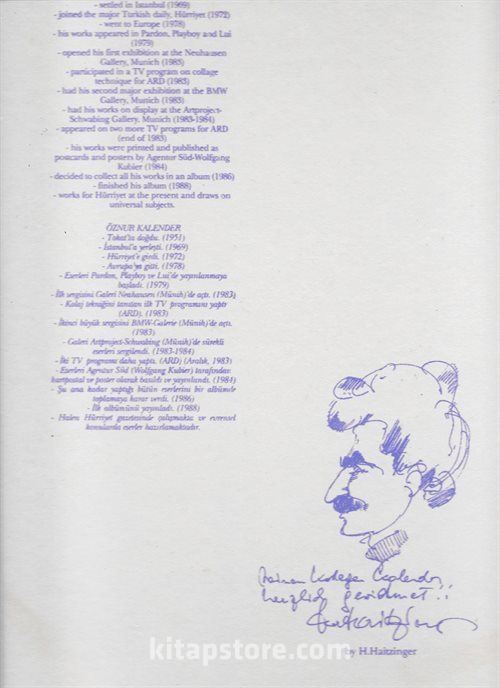 - settled in Istanbul (1969)
- joined the major Turkish daily, Hürriyet (1972)
- went to Europe (1978)
- his works appeared in Pardon, Playboy and Lui
(1979)
- opened his first exhibition at the Neuhausen
Gallery, Munich (1983)
- participated in a TV program on collage
technique for ARD (1983)
- had his second major exhibition at the BMW
Gallery, Munich (1983)
- had his works on display at the Artproject-
Schwabing Gallery, Munich (1983-1984)
- appeared on two more TV programs for ARD
(end of 1983)
- his works were printed and published as
postcards and posters by Agentur Süd-Wolfgang
Kubier (1984)
- decided to collect all his works in an album (1986)
- finished his album (1988)
- works for Hürriyet at the present and draws on
universal subjects.
ÖZNUR KALENDER
- Tokat'ta doğdu. (1951)
- İstanbul'a yerleşti. (1969)
- Hürriyet'e girdi. (1972)
- Avrupa'ya gitti. (1978)
- Eserleri Pardon, Playboy ve Lui'de yayınlanmaya
başladı. (1979)
- İlk sergisini Galeri Neuhausen (Münih)'de açtı. (1983)
- Kolaj tekniğini tanıtan ilk TV programını yaptı
(ARD). (1983)
- İkinci büyük sergisini BMW-Galerie (Münih)'de açtı.
(1983)
- Galeri Artproject-Schwabing (Münih)'de sürekli
eserleri sergilendi. (1983-1984)
- İki TV programı daha yaptı. (ARD) (Aralık, 1983)
- Eserleri Agentur Süd (Wolfgang Kubier) tarafından
kartpostal ve poster olarak basıldı ve yayınlandı. (1984)
- Şu ana kadar yaptığı bütün eserlerini bir albümde
toplamaya karar verdi. (1986)
- İlk albümünü yayınladı. (1988)
- Halen Hürriyet gazetesinde çalışmakta ve evrensel
konularda eserler hazırlamaktadır.
Meinem Kollegen Kalender
herzlich gewidmet!
by H.Haitzinger
kitapstore.com